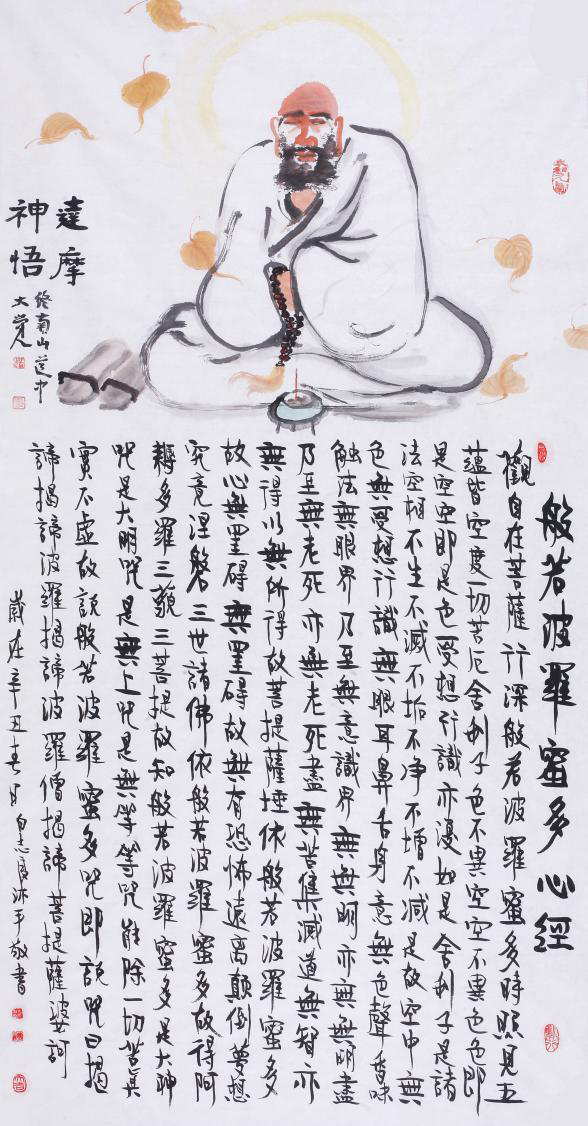 達摩
神悟
終南山道中
大覺人
般若波羅蜜多心經
觀自在菩薩行深般若波羅蜜多時照見五
蘊皆空度一切苦厄舍利子色不異空空不異色色即
是空空即是色受想行識亦復如是舍利子是諸
法空相不生不滅不垢不净不增不减是故空中無
色無受想行識無眼耳鼻舌身意無色聲香味
触法無眼界乃至無意識界無無明亦無無明盡
乃至無老死亦無老死盡無苦集滅道無智亦
無得以無所得故菩提薩埵依般若波羅蜜多
故心無罣碍無罣碍故無有恐怖遠离颠倒夢想
究竟涅磐三世諸佛依般若波羅蜜多故得阿
耨多羅三藐三菩提故知般若波羅蜜多是大神
咒是大明咒是無上咒是無等等咒能除一切苦真
實不虚故說般若波羅蜜多咒即說咒曰揭
諦揭諦波羅揭諦波羅僧揭諦菩提薩婆訶
歲在辛丑春月白志沐手敬書